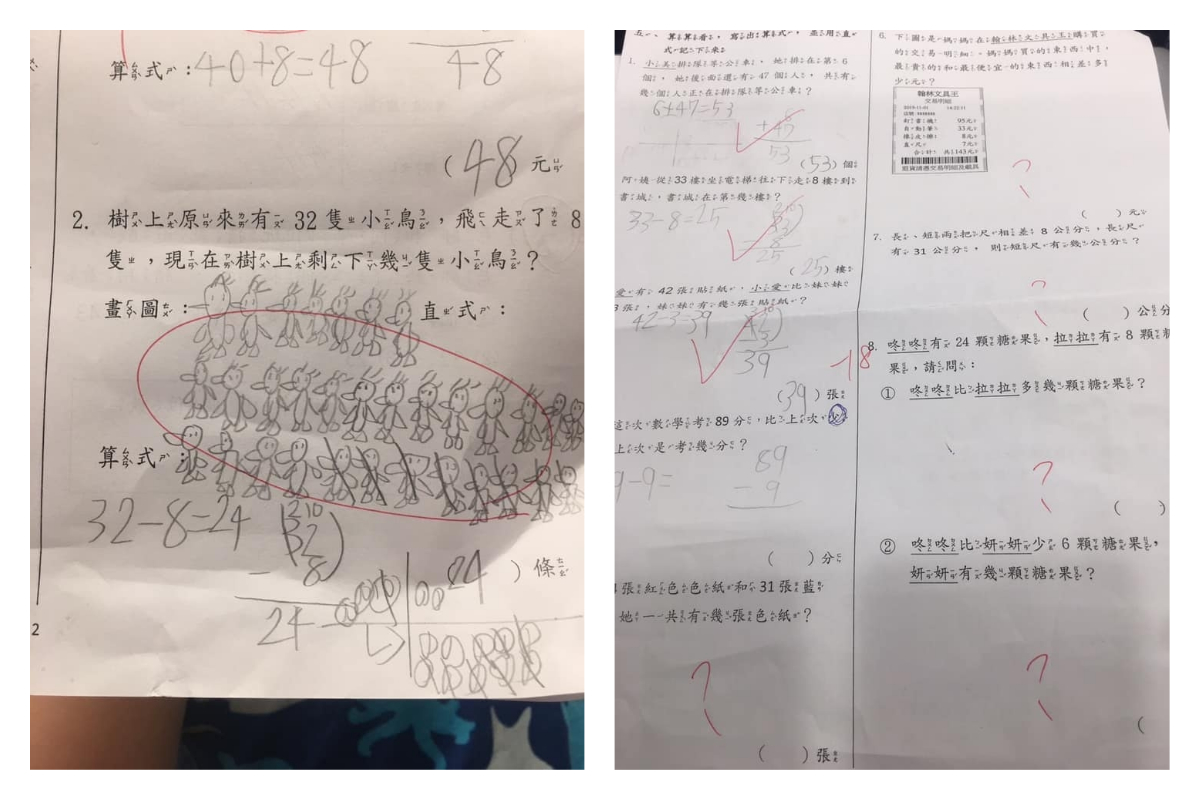 算式：40+8=48
48
( 48 元
2. 樹上原來有 32 隻小鳥，飛走了 8
隻，現在樹上剩下幾隻小鳥？
畫圖： 直式：
算式：
32-8=24
24
24
) 條
2
五、算算看，寫出算式，並用直
式記下來
1. 小美排隊等公車，她排在第 6
個，她後面還有 47 個人，共有
幾個人正在排隊等公車？
6+47=53
53
(53) 個
阿姨從 33 樓坐電梯往下走 8 樓到
書城，書城在第幾樓？
33-8=25
25
(25) 樓
愛有 42 張貼紙，小愛比妹妹
3 張，妹妹有幾張貼紙？
42-3=39
39
(39) 張
-18
這次數學考 89 分，比上次少
上次是考幾分？
9-9=
89
-9
( ) 分
張紅色色紙和 31 張藍
她一共有幾張色紙？
?
( ) 張
6. 下圖是媽媽在翰林文具王購買
的交易明細。媽媽買的東西中，
最貴的和最便宜的東西相差多
少元？
翰林文具王
交易明細
釘書機 95元
自動筆 33元
橡皮擦 8元
直尺 7元
合計 共143元
?
( ) 元
7. 長、短兩把尺相差 8 公分，長尺
有 31 公分，則短尺有幾公分？
?
( ) 公分
8. 咚咚有 24 顆糖果，拉拉有 8 顆糖
果，請問：
① 咚咚比拉拉多幾顆糖果？
?
( )
② 咚咚比妍妍少 6 顆糖果，
妍妍有幾顆糖果？
?
(